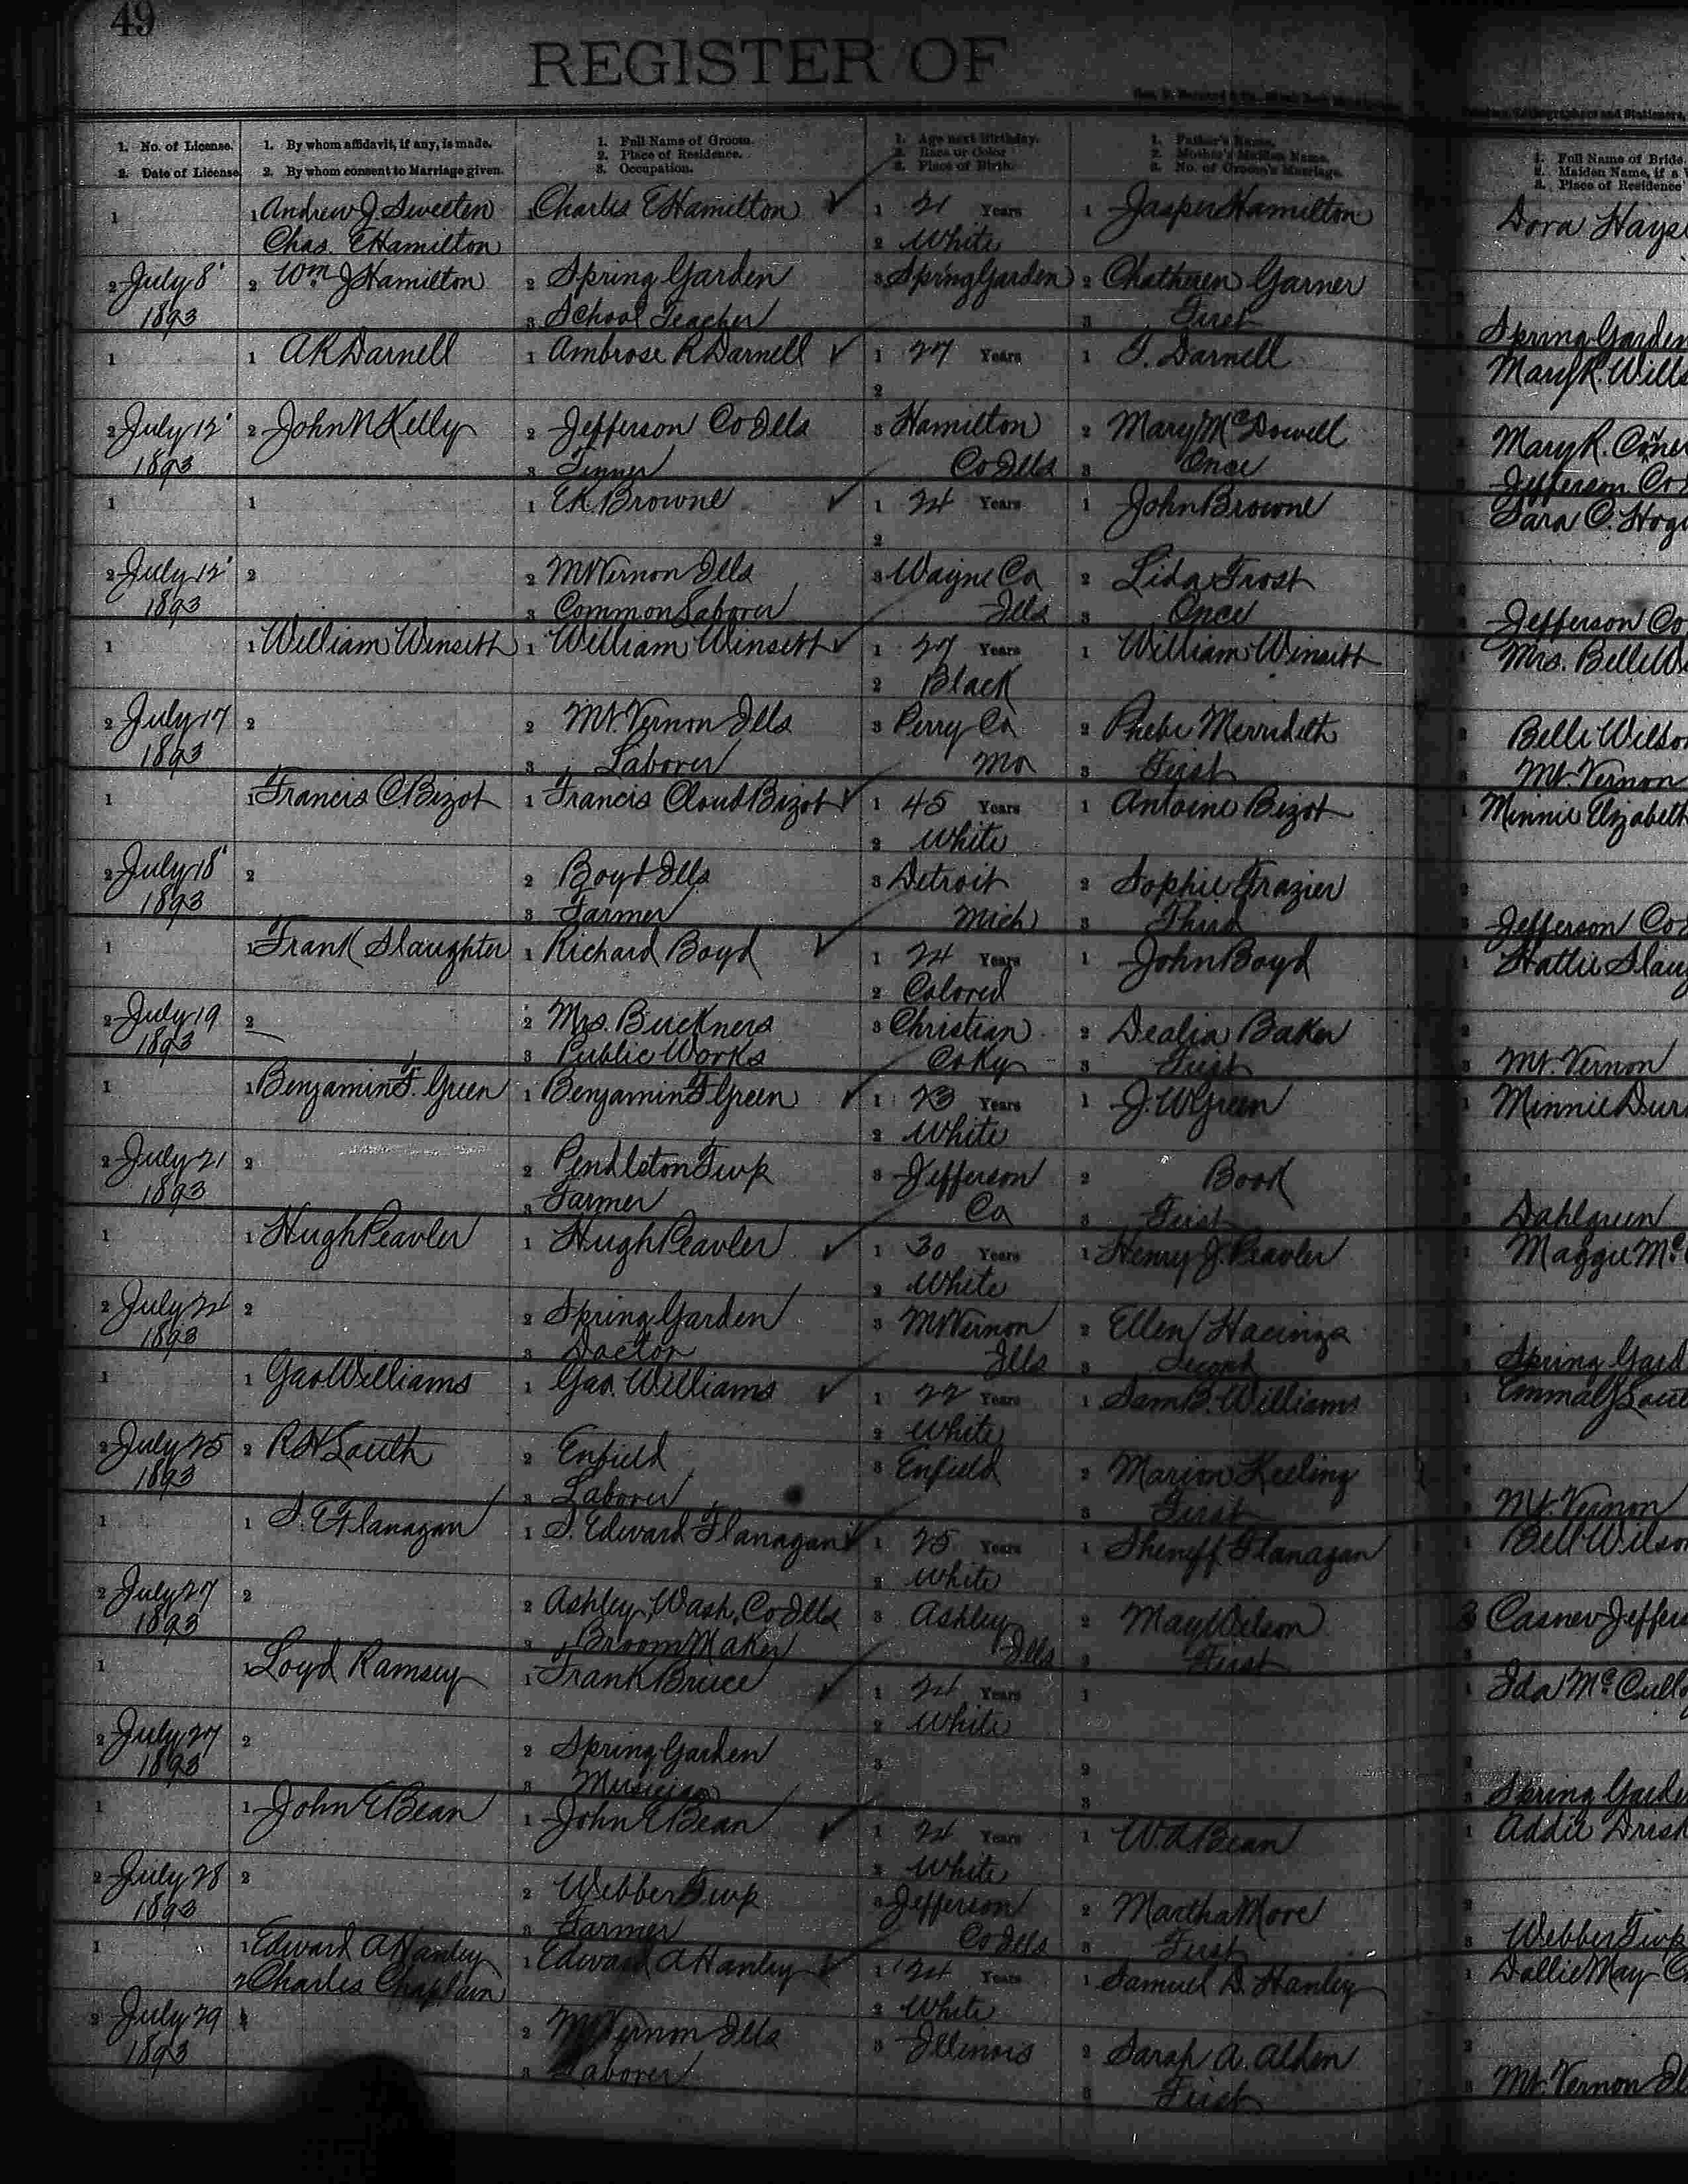 49
REGISTER OF
1. No. of License.
2. Date of License.
1. By whom affidavit, if any, is made.
2. By whom consent to Marriage given.
1. Full Name of Groom.
2. Place of Residence.
3. Occupation.
1. Age next Birthday.
2. Race or Color
3. Place of Birth.
1. Father's Name.
2. Mother's Maiden Name.
3. No. of Groom's Marriage.
1. Full Name of Bride.
2. Maiden Name, if a
3. Place of Residence
1 1 Andrew J. Sweeten 1 Charles E Hamilton 1 21 Years 1 Jasper Hamilton Dora Hays
Chas. E Hamilton 2 White
2 July 8 2 Wm J Hamilton 2 Spring Garden 3 Spring Garden 2 Chatheren Garner
1893 3 School Teacher 3 First Spring Garden
1 1 A R Darnell 1 Ambrose R Darnell 1 27 Years 1 J. Darnell Mary R. Wills
2
2 July 12 2 John N Kelly 2 Jefferson Co Ills 3 Hamilton 2 Mary McDowell Mary R.
1893 3 Tinner Co Ills 3 Once Jefferson Co
1 1 1 E K Browne 1 24 Years 1 John Browne Sara C. Hog
2
2 July 12 2 2 Mt Vernon Ills 3 Wayne Co 2 Lida Frost
1893 3 Common Laborer Ills 3 Once Jefferson Co
1 1 William Winsett 1 William Winsett 1 27 Years 1 William Winsett Mrs. Belle W
2 Black
2 July 17 2 2 Mt. Vernon Ills 3 Perry Co 2 Phebe Merrideth Belle Wilso
1893 3 Laborer Mo 3 First Mt. Vernon
1 1 Francis C Bizot 1 Francis Cloud Bizot 1 45 Years 1 Antoine Bizot Minnie Elizabeth
2 White
2 July 18 2 2 Boyd Ills 3 Detroit 2 Sophie Frazier
1893 3 Farmer Mich 3 Third Jefferson Co
1 1 Frank Slaughter 1 Richard Boyd 1 24 Years 1 John Boyd Hattie Slau
2 Colored
2 July 19 2 2 Mrs. Buckners 3 Christian 2 Dealia Baker
1893 3 Public Works Co Ky 3 First Mt. Vernon
1 1 Benjamin F. Green 1 Benjamin F Green 1 23 Years 1 J. W Green Minnie Dur
2 White
2 July 21 2 2 Pendleton Twp 3 Jefferson 2 Book
1893 3 Farmer Co 3 First Dahlgreen
1 1 Hugh Peavler 1 Hugh Peavler 1 30 Years 1 Henry J. Peavler Maggie Mc
2 White
2 July 24 2 2 Spring Garden 3 Mt Vernon 2 Ellen
1893 3 Doctor Ills 3 Second Spring Gard
1 1 Geo Williams 1 Geo. Williams 1 22 Years 1 Sam B. Williams Emma
2 White
2 July 25 2 R H 2 Enfield 3 Enfield 2 Marion Keeling
1893 3 Laborer 3 First Mt. Vernon
1 1 S. E Flanagan 1 S. Edward Flanagan 1 25 Years 1 Flanagan Bell Wilson
2 White
2 July 27 2 2 Ashley, Wash, Co Ills 3 Ashley 2 May Wilson 3 Casner Jeffers
1893 3 Broom Maker Ills 3 First
1 1 Loyd Ramsey 1 Frank Bruce 1 24 Years 1 Ida McCull
2 White
2 July 27 2 2 Spring Garden 3 2
1893 3 Musician 3 Spring Garde
1 1 John E Bean 1 John E Bean 1 24 Years 1 W. A. Bean Addie Drish
2 White
2 July 28 2 2 Webber Twp 3 Jefferson 2 Martha More
1893 3 Farmer Co Ills 3 First Webber Twp
1 1 Edward A Hanley 1 Edward A Hanley 1 24 Years 1 Samuel D. Hanley Dollie May
2 Charles Chaplain 2 White
2 July 29 2 Mt Vernon Ills 3 Illinois 2 Sarah A. Alden
1893 3 Laborer 3 First Mt. Vernon Il